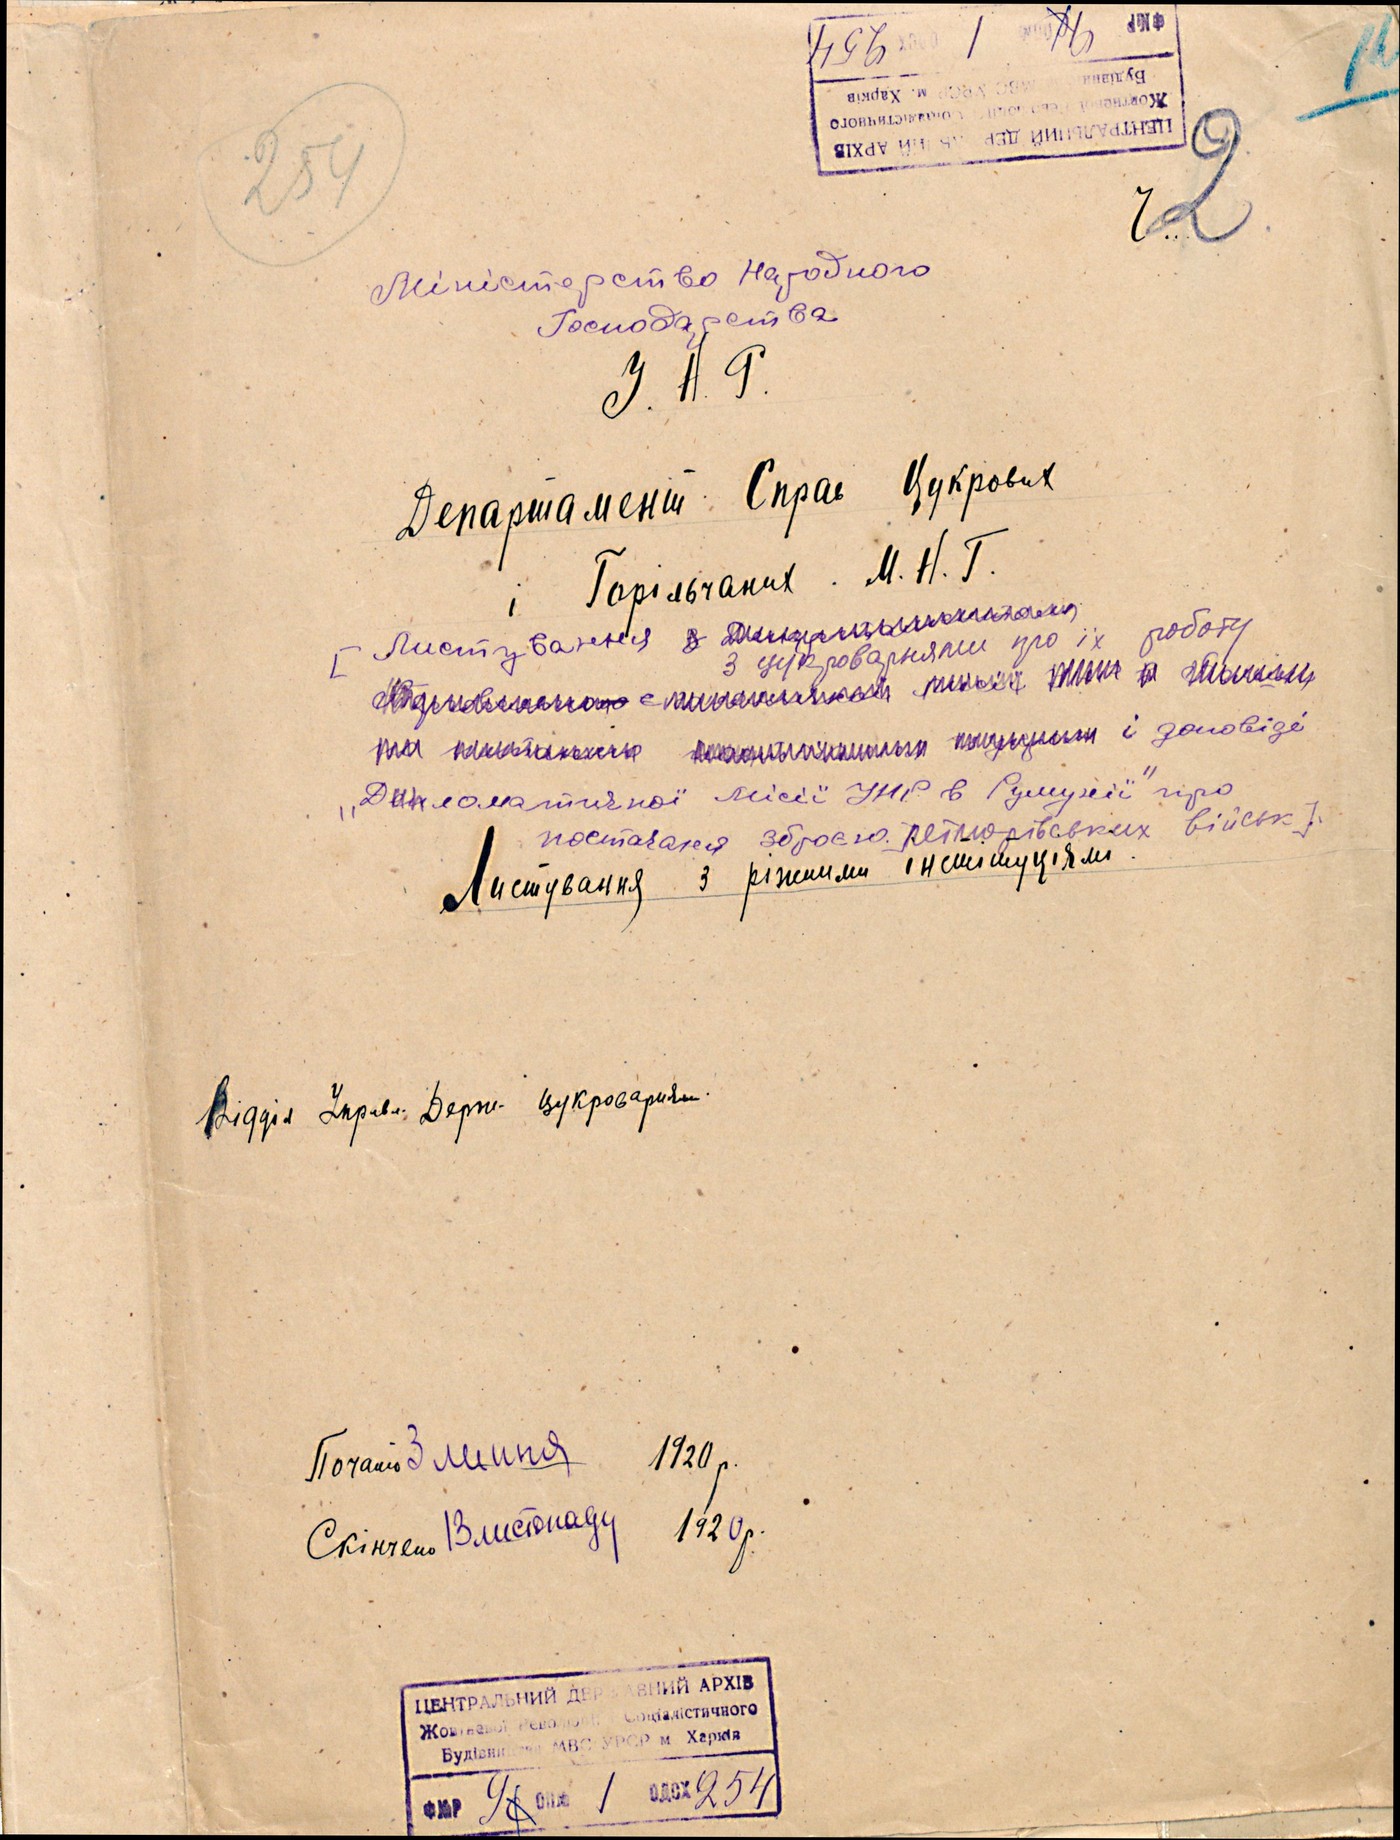 254
ЦЕНТРАЛЬНИЙ ДЕРЖАВНИЙ АРХІВ
Жовтневої Революції Соціалістичного
Будівництва МВС УРСР м. Харків
ФЖР 1 254
Ч 2
Міністерство Народного
Господарства
У. Н. Р.
Департамент Справ Цукрових
і Горільчаних М. Н. Г.
[Листування з
з цукроварнями про їх роботу
і доповіді
"Дипломатичної Місії УНР в Румунії" про
постачання зброєю петлюрівських військ].
Листування з ріжними інстітуціями.
Відділ Управл. Держ. Цукроварням.
Почато 3 липня 1920 р.
Скінчено 13 листопаду 1920 р.
ЦЕНТРАЛЬНИЙ ДЕРЖАВНИЙ АРХІВ
Жовтневої Революції Соціалістичного
Будівництва МВС УРСР м Харків
ФЖР ОПЖ 1 ОДОХ 254